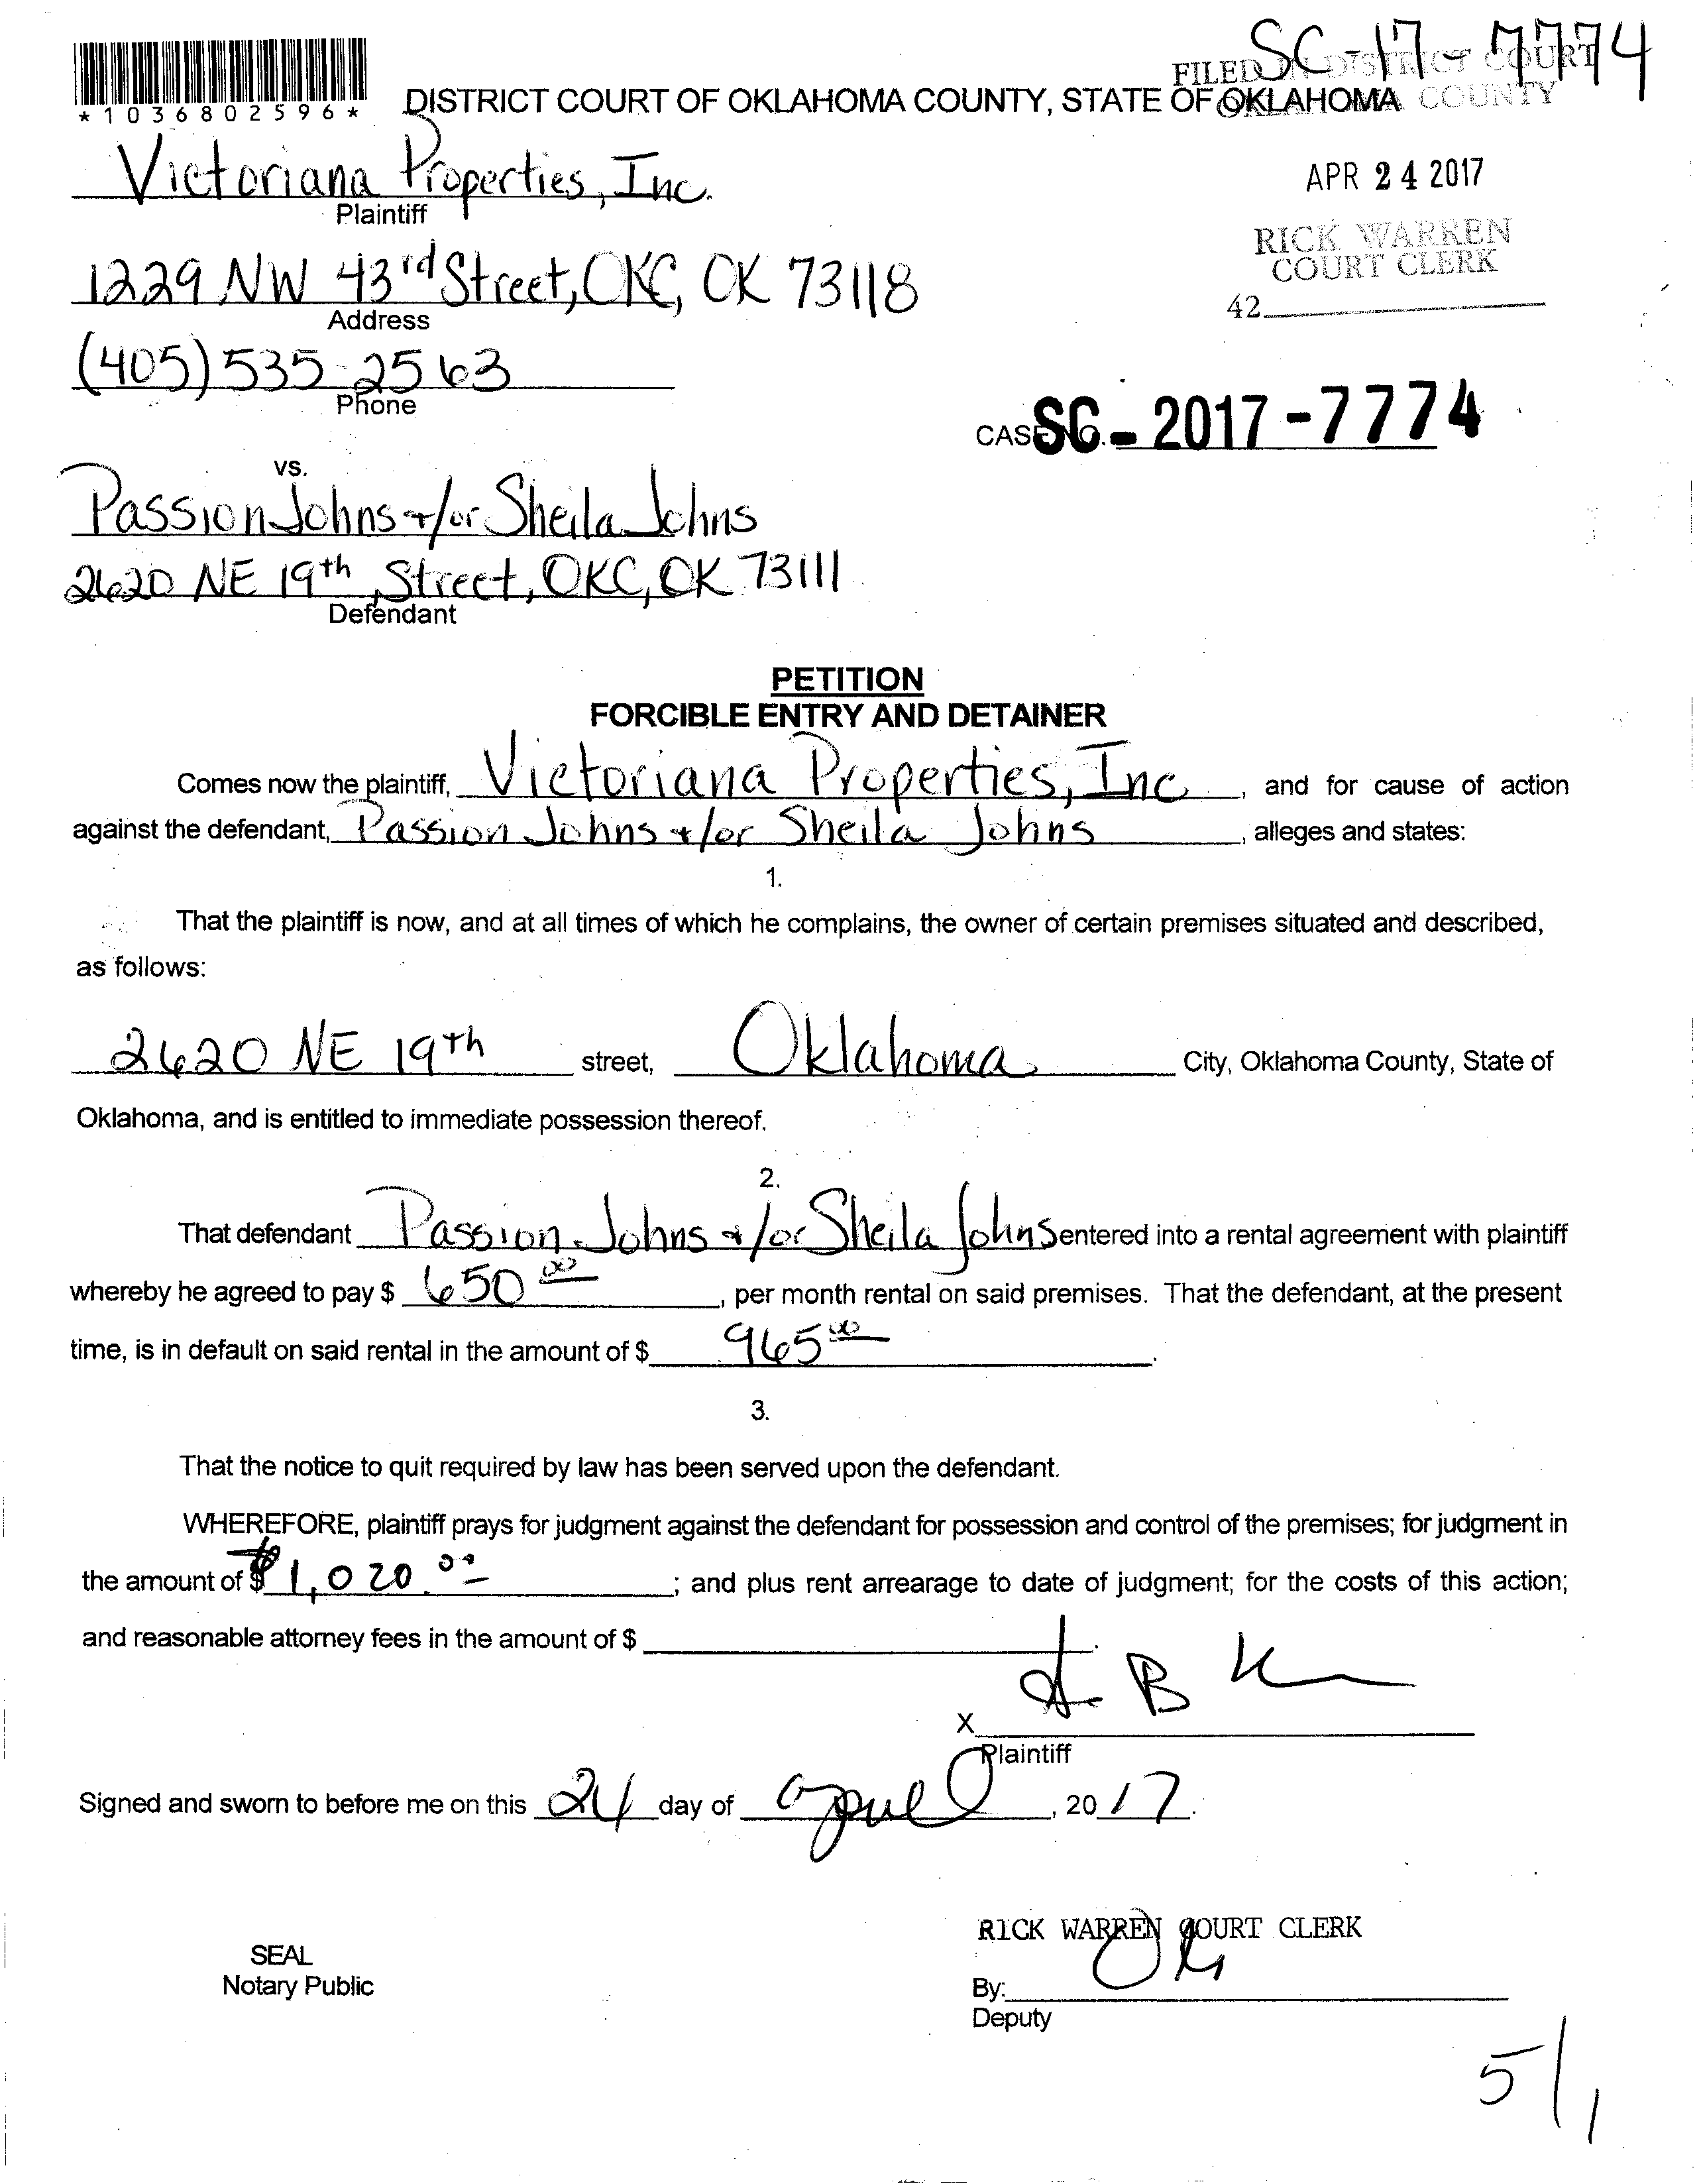 SC-17-7774
FILED IN DISTRICT COURT
*1036802596*
DISTRICT COURT OF OKLAHOMA COUNTY, STATE OF OKLAHOMA COUNTY
Victoriana Properties, Inc.
Plaintiff
APR 24 2017
RICK WARREN
COURT CLERK
42
1229 NW 43rd Street, OKC, OK 73118
Address
(405) 535-2563
Phone
CASE NO. SC-2017-7774
vs.
Passion Johns +/or Sheila Johns
2620 NE 19th Street, OKC, OK 73111
Defendant
PETITION
FORCIBLE ENTRY AND DETAINER
Comes now the plaintiff, Victoriana Properties, Inc, and for cause of action
against the defendant, Passion Johns +/or Sheila Johns, alleges and states:
1.
That the plaintiff is now, and at all times of which he complains, the owner of certain premises situated and described,
as follows:
2620 NE 19th street, Oklahoma City, Oklahoma County, State of
Oklahoma, and is entitled to immediate possession thereof.
2.
That defendant Passion Johns +/or Sheila Johns entered into a rental agreement with plaintiff
whereby he agreed to pay $ 650 00, per month rental on said premises. That the defendant, at the present
time, is in default on said rental in the amount of $ 965 00.
3.
That the notice to quit required by law has been served upon the defendant.
WHEREFORE, plaintiff prays for judgment against the defendant for possession and control of the premises; for judgment in
the amount of $ 1,020.00; and plus rent arrearage to date of judgment; for the costs of this action;
and reasonable attorney fees in the amount of $
X
Plaintiff
Signed and sworn to before me on this 24 day of april, 2017.
RICK WARREN COURT CLERK
SEAL
Notary Public
By:
Deputy
5/1